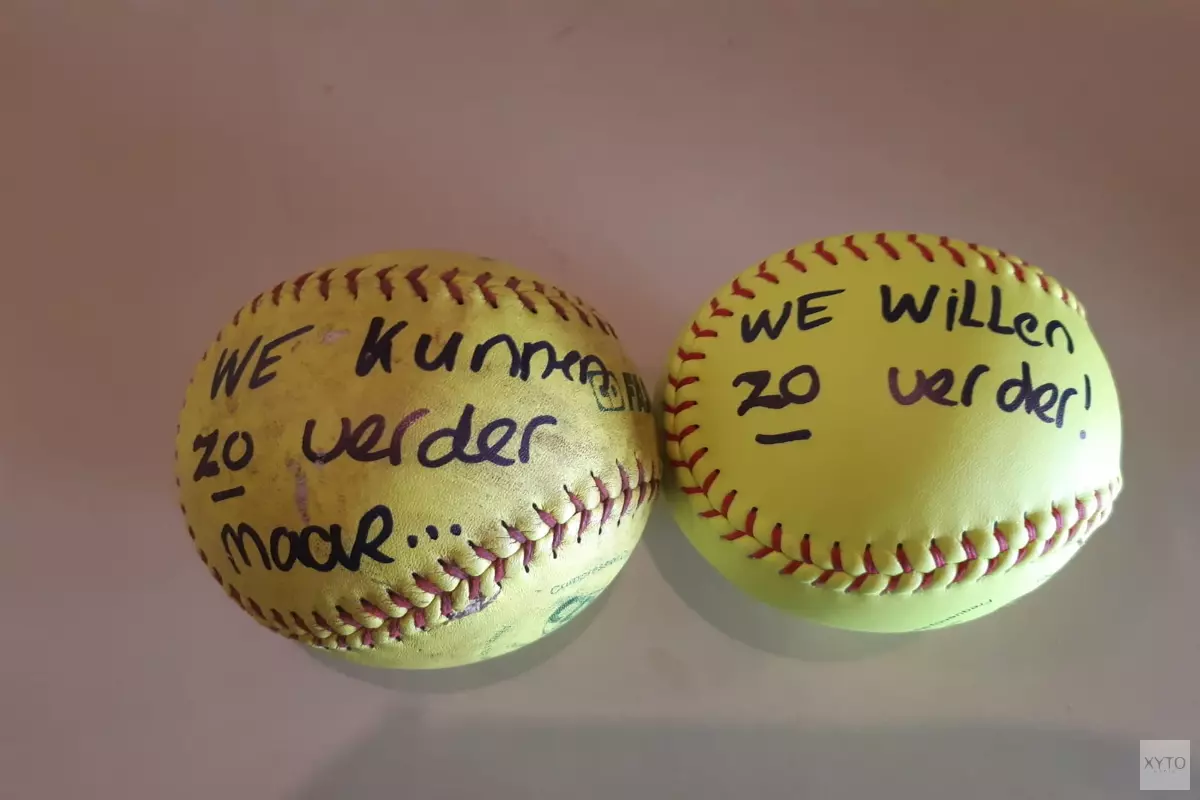 WE Kunnen
zo verder
maar...
WE Willen
zo verder!
XYTO